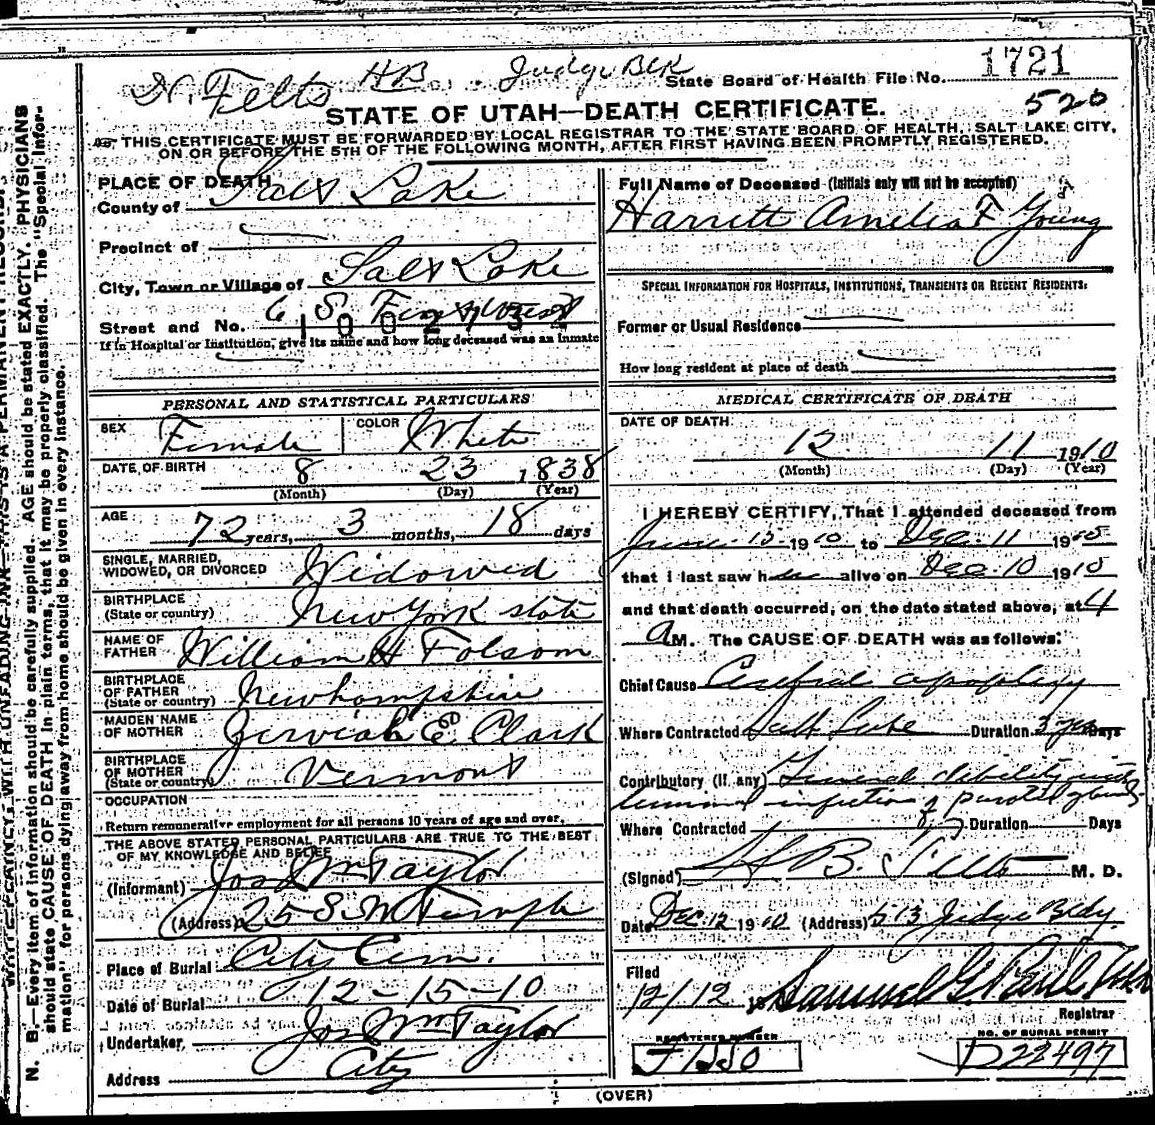 H B Judge Blk State Board of Health File No. 1721
Felts
STATE OF UTAH—DEATH CERTIFICATE. 520
THIS CERTIFICATE MUST BE FORWARDED BY LOCAL REGISTRAR TO THE STATE BOARD OF HEALTH, SALT LAKE CITY,
ON OR BEFORE THE 5TH OF THE FOLLOWING MONTH, AFTER FIRST HAVING BEEN PROMPTLY REGISTERED.
PLACE OF DEATH
County of Salt Lake
Precinct of
City, Town or Village of Salt Lake
Street and No. 6 S First West
1002754
If in Hospital or Institution, give its name and how long deceased was an inmate
PERSONAL AND STATISTICAL PARTICULARS
SEX Female COLOR White
DATE OF BIRTH 8 23 1838
(Month) (Day) (Year)
AGE 72 years, 3 months, 18 days
SINGLE, MARRIED,
WIDOWED, OR DIVORCED Widowed
BIRTHPLACE
(State or country) New York state
NAME OF
FATHER William H Folsom
BIRTHPLACE
OF FATHER
(State or country) Newhampshire
MAIDEN NAME
OF MOTHER Zerviah E. Clark
BIRTHPLACE
OF MOTHER
(State or country) Vermont
OCCUPATION
Return remunerative employment for all persons 10 years of age and over.
THE ABOVE STATED PERSONAL PARTICULARS ARE TRUE TO THE BEST
OF MY KNOWLEDGE AND BELIEF
(Informant) Jos Wm Taylor
(Address) 25 S. W Temple
Place of Burial City Cem.
Date of Burial 12-15-10
Undertaker Jos Wm Taylor
Address City
Full Name of Deceased (Initials only will not be accepted)
Harrett Amelia F Young
SPECIAL INFORMATION FOR HOSPITALS, INSTITUTIONS, TRANSIENTS OR RECENT RESIDENTS:
Former or Usual Residence
How long resident at place of death
MEDICAL CERTIFICATE OF DEATH
DATE OF DEATH
12 11 1910
(Month) (Day) (Year)
I HEREBY CERTIFY, That I attended deceased from
June 15 1910 to Dec. 11 1910
that I last saw her alive on Dec. 10 1910
and that death occurred, on the date stated above, at 4
a M. The CAUSE OF DEATH was as follows:
Chief Cause Cerebral apoplexy
Where Contracted Salt Lake Duration 3 yrs Days
Contributory (if any) General debility with
terminal infection of parotid glands
Where Contracted Duration Days
(Signed) H B. Felts M. D.
Date Dec. 12 1910 (Address) 513 Judge Bldg.
Filed
12/12 19 Samuel G. Paul
Registrar
REGISTERED NUMBER NO. OF BURIAL PERMIT
D22497
(OVER)
WRITE PLAINLY, WITH UNFADING INK—THIS IS A PERMANENT RECORD.
N. B.—Every item of information should be carefully supplied. AGE should be stated EXACTLY. PHYSICIANS
should state CAUSE OF DEATH in plain terms, that it may be properly classified. The "Special Infor-
mation" for persons dying away from home should be given in every instance.